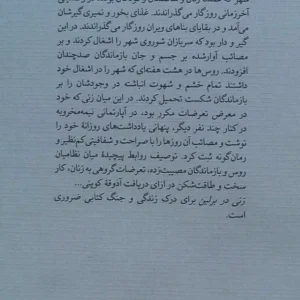 آخرزمانی روزگار می‌گذراندند. غذای بخور و نمیری گیرشان
می‌آمد و در بقایای بناهای ویران روزگار می‌گذراندند. در این
گیر و دار بود که سربازان شوروی شهر را اشغال کردند و بر
مصائب آوارشده بر جسم و جان بازماندگان صدچندان
افزودند. روس‌ها در هشت هفته‌ای که شهر را در اشغال خود
داشتند، تمام خشم و شهوت انباشته در وجودشان را بر
بازماندگان شکست تحمیل کردند. در این میان زنی که خود
در معرض تعرضات مکرر بود، در آپارتمانی نیمه‌مخروبه
در کنار چند نفر دیگر، پنهانی یادداشت‌های روزانهٔ خود را
نوشت و مصائب آن روزها را با صراحت و شفافیتی کم‌نظیر و
رمان‌گونه ثبت کرد. توصیف روابط پیچیدهٔ میان نظامیان
روس و بازماندگان مصیبت‌زده، تعرضات گروهی به زنان، کار
سخت و طاقت‌شکن در ازای دریافت آذوقهٔ کوپنی...
زنی در برلین برای درک زندگی و جنگ کتابی ضروری
است.